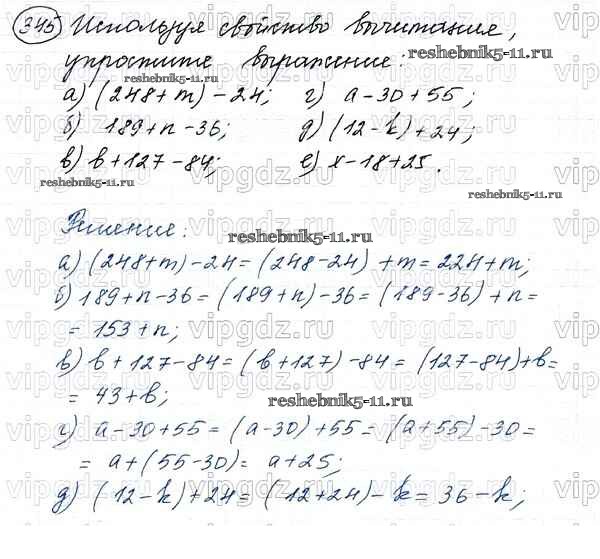 345 Используя свойство вычитание,
упростите выражение:
reshebnik5-11.ru
а) (248+m)-24; г) а-30+55;
б) 189+n-36; д) (12-k)+24;
в) b+127-84; е) x-18+25.
reshebnik5-11.ru
reshebnik5-11.ru
Решение:
reshebnik5-11.ru
а) (248+m)-24=(248-24)+m=224+m;
б) 189+n-36=(189+n)-36=(189-36)+n=
=153+n;
в) b+127-84=(b+127)-84=(127-84)+b=
=43+b;
reshebnik5-11.ru
г) а-30+55=(а-30)+55=(а+55)-30=
=а+(55-30)=а+25;
д) (12-k)+24=(12+24)-k=36-k;
vipgdz.ru